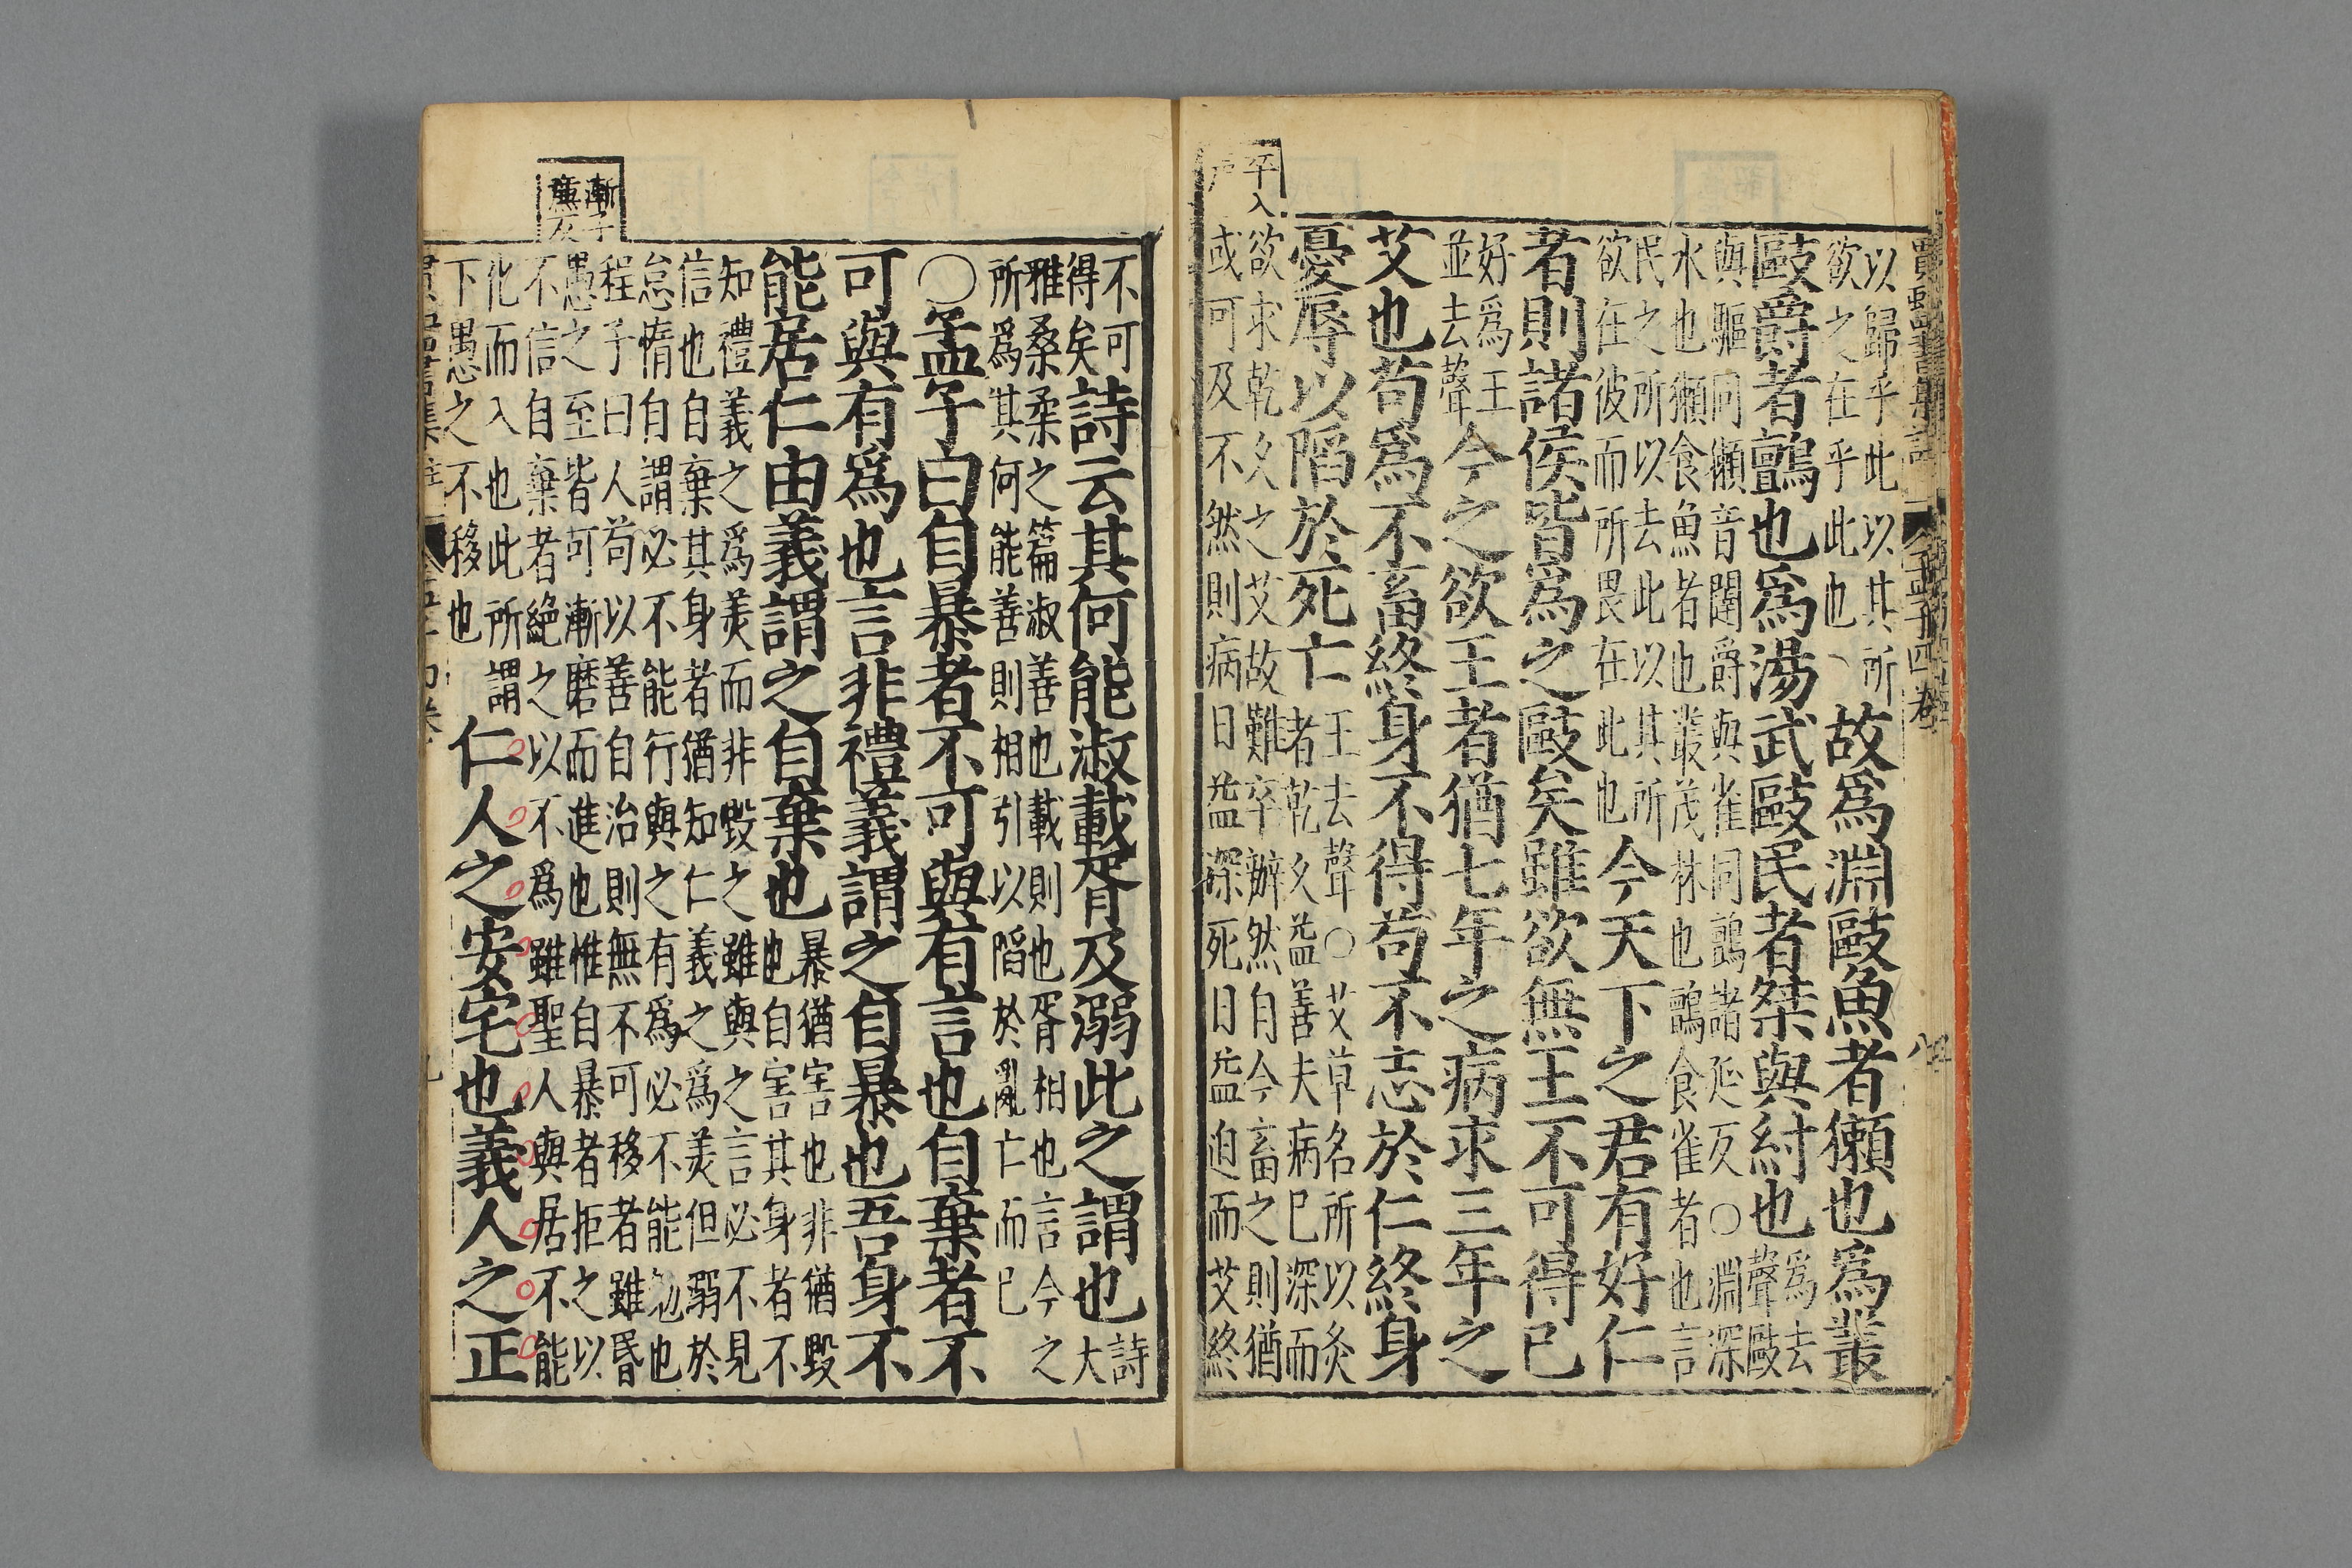 孟子四卷
八
以歸乎此以其所
欲之在乎此也
故爲淵敺魚者獺也爲叢
敺爵者鸇也爲湯武敺民者桀與紂也
爲去
聲敺
與驅同獺音闥爵與雀同鸇諸延反○淵深
水也獺食魚者也叢茂林也鸇食雀者也言
民之所以去此以其所
欲在彼而所畏在此也
今天下之君有好仁
者則諸侯皆爲之敺矣雖欲無王不可得已
好爲王
並去聲
今之欲王者猶七年之病求三年之
艾也苟爲不畜終身不得苟不志於仁終身
憂辱以陷於死亡
王去聲○艾草名所以灸
者乾久益善夫病已深而
卒入
声
欲求乾久之艾故難卒辦然自今畜之則猶
或可及不然則病日益深死日益迫而艾終
不可
得矣
詩云其何能淑載胥及溺此之謂也
詩
大
雅桑柔之篇淑善也載則也胥相也言今之
所爲其何能善則相引以陷於亂亡而已
○孟子曰自暴者不可與有言也自棄者不
可與有爲也言非禮義謂之自暴也吾身不
能居仁由義謂之自棄也
暴猶害也非猶毀
也自害其身者不
知禮義之爲美而非毀之雖與之言必不見
信也自棄其身者猶知仁義之爲美但溺於
怠惰自謂必不能行與之有爲必不能勉也
程子曰人苟以善自治則無不可移者雖昏
漸子
廉反
愚之至皆可漸磨而進也惟自暴者拒之以
不信自棄者絕之以不爲雖聖人與居不能
化而入也此所謂
下愚之不移也
仁人之安宅也義人之正